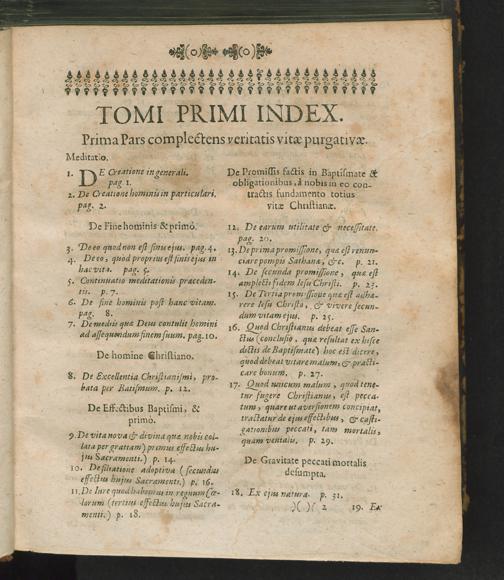 TOMI PRIMI INDEX.
Prima Pars complectens veritatis vitæ purgativæ.
Meditatio.
1. DE Creatione in generali.
pag 1.
2. De Creatione hominis in particulari.
pag. 2.
De Fine hominis & primò.
3. De eo quod non est finis ejus. pag. 4.
4. De eo, quod proprius est finis ejus in
hac vita. pag. 5.
5. Continuatio meditationis præceden-
tis. p. 7.
6. De fine hominis post hanc vitam.
pag. 8.
7. De mediis quæ Deus contulit homini
ad assequendum finem suum. pag. 10.
De homine Christiano.
8. De Excellentia Christianismi, pro-
bata per Batismum. p. 12.
De Effectibus Baptismi, &
primò.
9. De vita nova & divina quæ nobis col-
lata per gratiam) primus effectus hu-
jus Sacramenti.) p. 14.
10. De filiatione adoptiva (secundus
effectus hujus Sacramenti) p. 16.
11. De Iure quod habemus in regnum (cæ-
larum (tertius effectus hujus Sacra-
menti.) p. 18.
De Promissis factis in Baptismate &
obligationibus, à nobis in eo con-
tractis fundamento totius
vitæ Christianæ.
12. De earum utilitate & necessitate.
pag. 20.
13. De prima promissione, quæ est renun-
ciare pompis Sathanæ, &c. p. 21.
14. De secunda promissione, quæ est
amplecti fidem Iesu Christi. p. 23.
15. De Tertia promissione quæ est adhæ-
rere Iesu Christo, & vivere secun-
dum vitam ejus. p. 25.
16. Quod Christianus debeat esse San-
ctus (conclusio, quæ resultat ex hisce
dictis de Baptismate) hoc est dicere,
quod debeat vitare malum, & practi-
care bonum. p. 27.
17. Quod unicum malum, quod tene-
tur fugere Christianus, est pecca-
tum, quare ut aversionem concipiat,
tractatur de ejus effectibus, & casti-
gationibus peccati, tam mortalis,
quam venialis. p. 29.
De Gravitate peccati mortalis
desumpta.
18. Ex ejus natura. p. 31.
)( )( 2 19. Ex